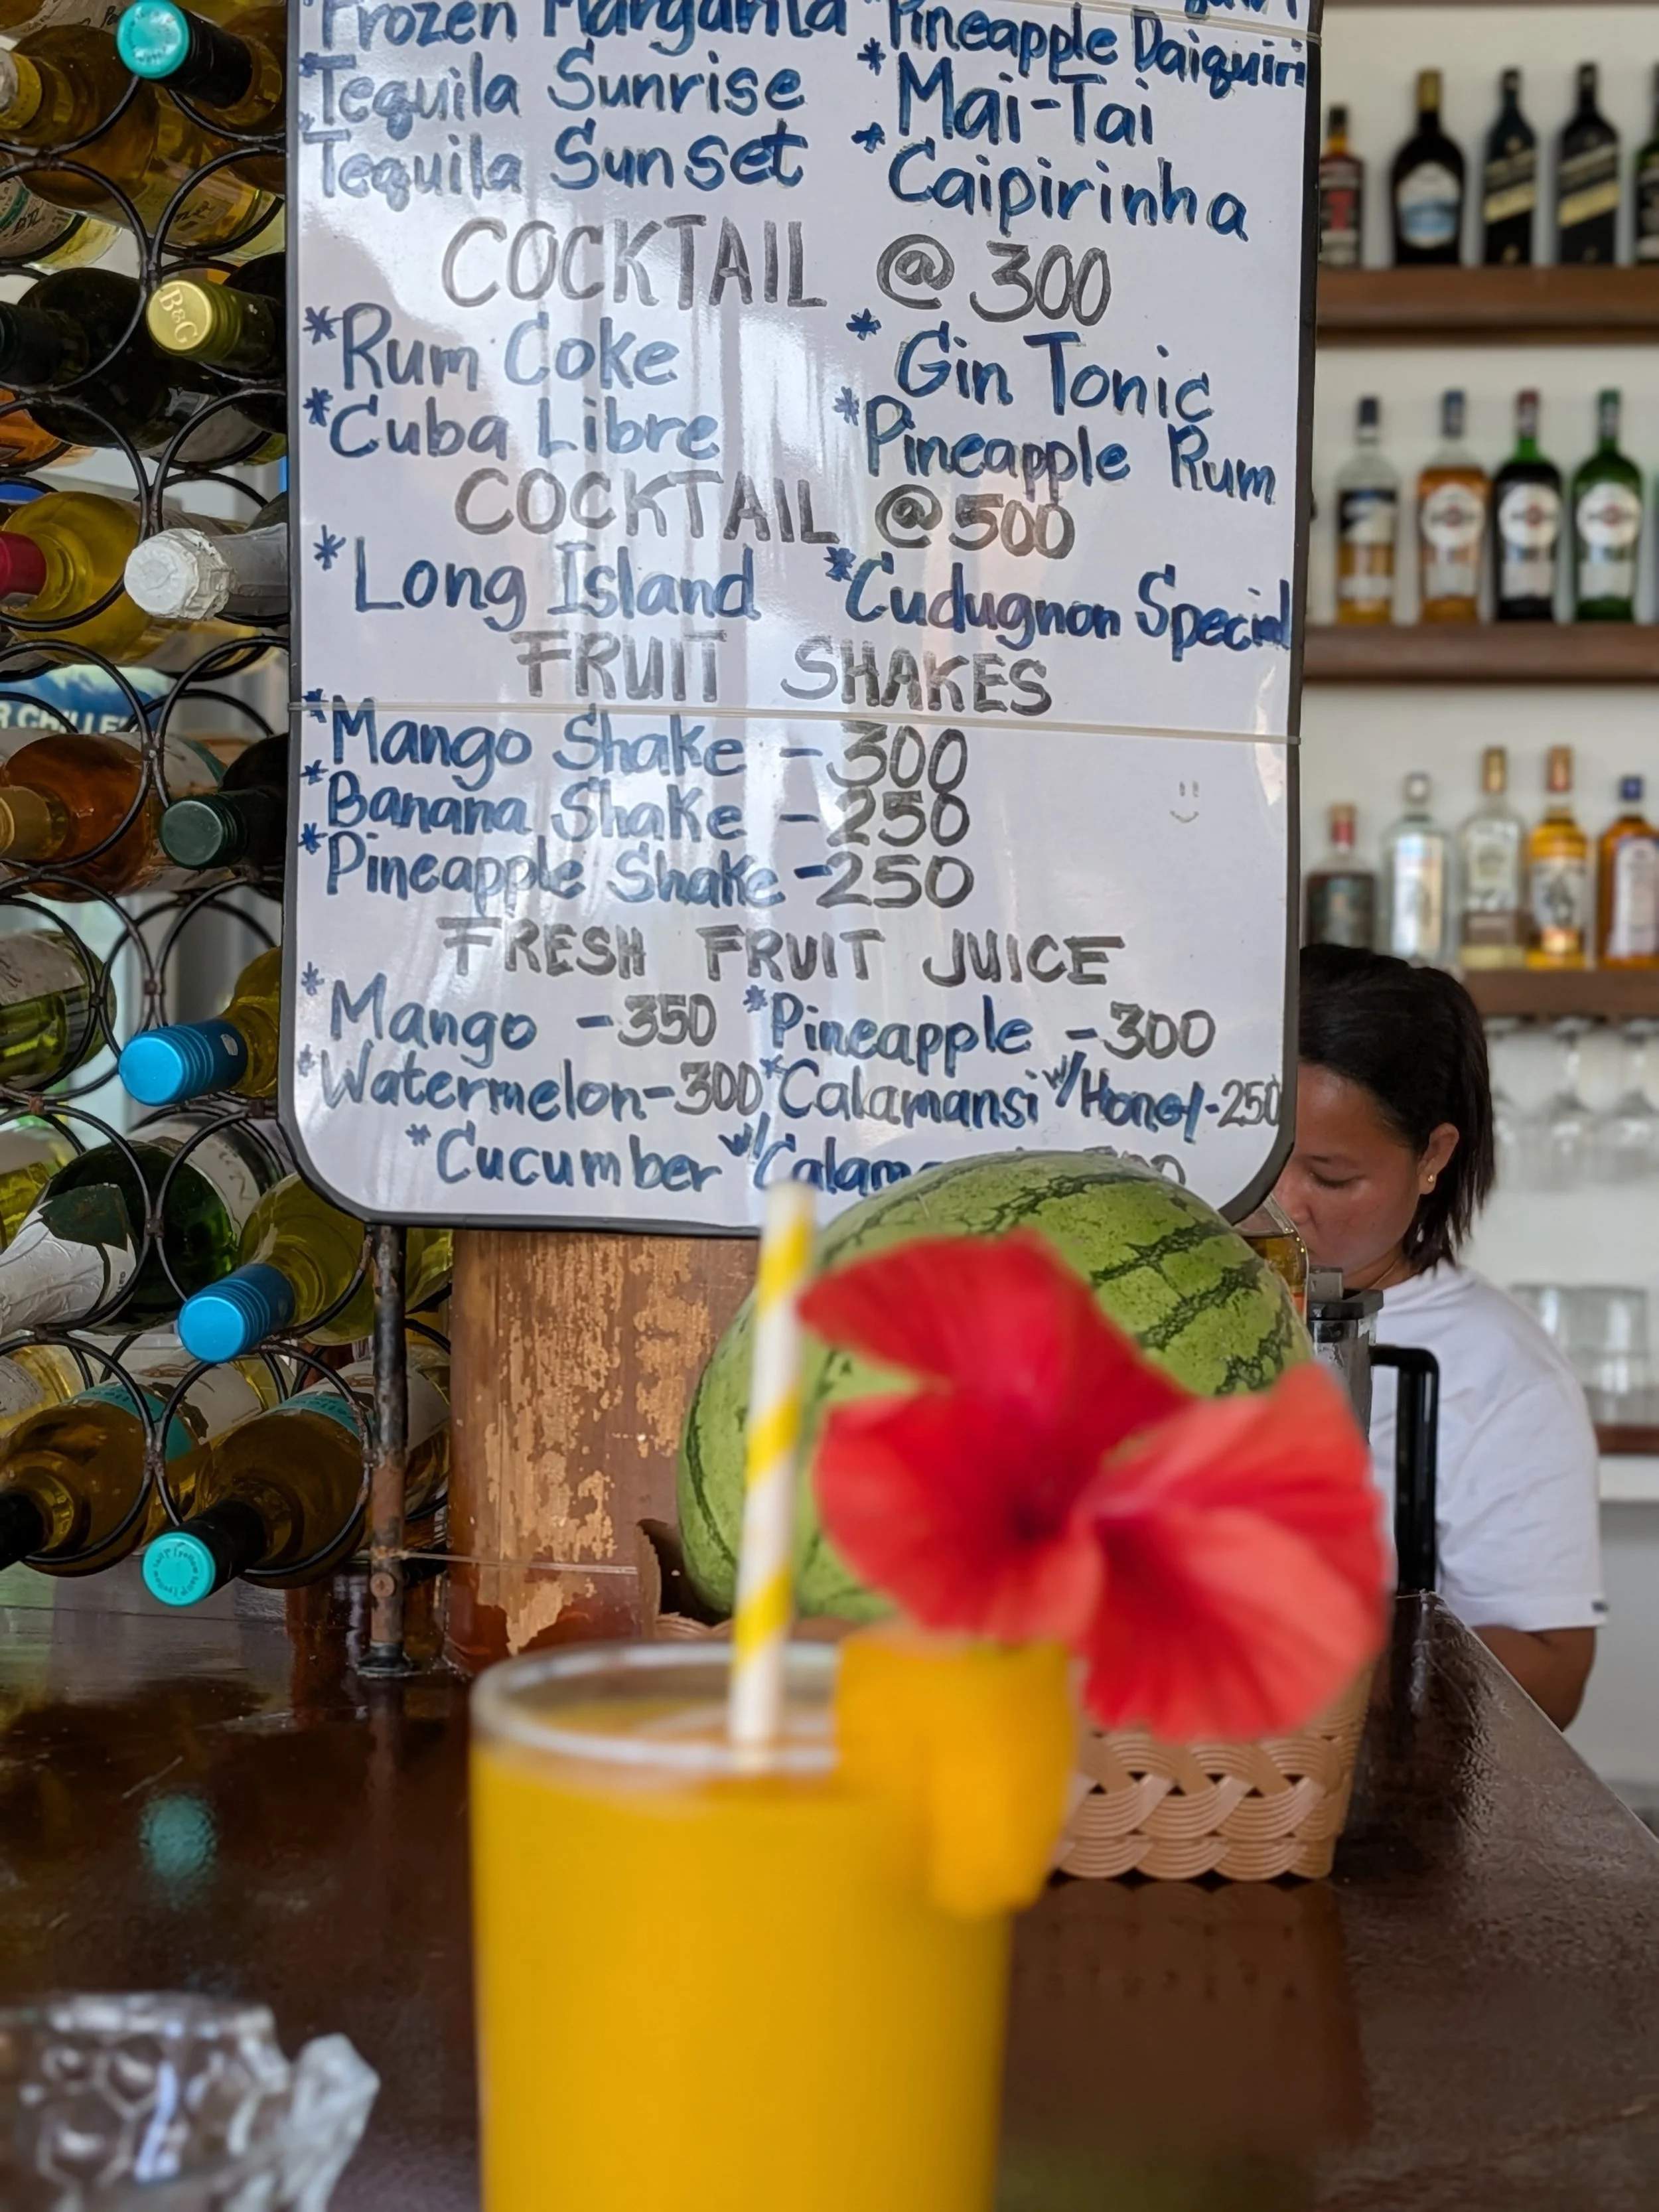 *Frozen Margarita *Pineapple Daiquiri
*Tequila Sunrise *Mai-Tai
*Tequila Sunset *Caipirinha
COCKTAIL @ 300
*Rum Coke *Gin Tonic
*Cuba Libre *Pineapple Rum
COCKTAIL @ 500
*Long Island *Cudugnon Special
FRUIT SHAKES
*Mango Shake - 300
*Banana Shake - 250
*Pineapple Shake - 250
FRESH FRUIT JUICE
*Mango - 350 *Pineapple - 300
*Watermelon - 300 *Calamansi w/ Honey - 250
*Cucumber w/
B&G